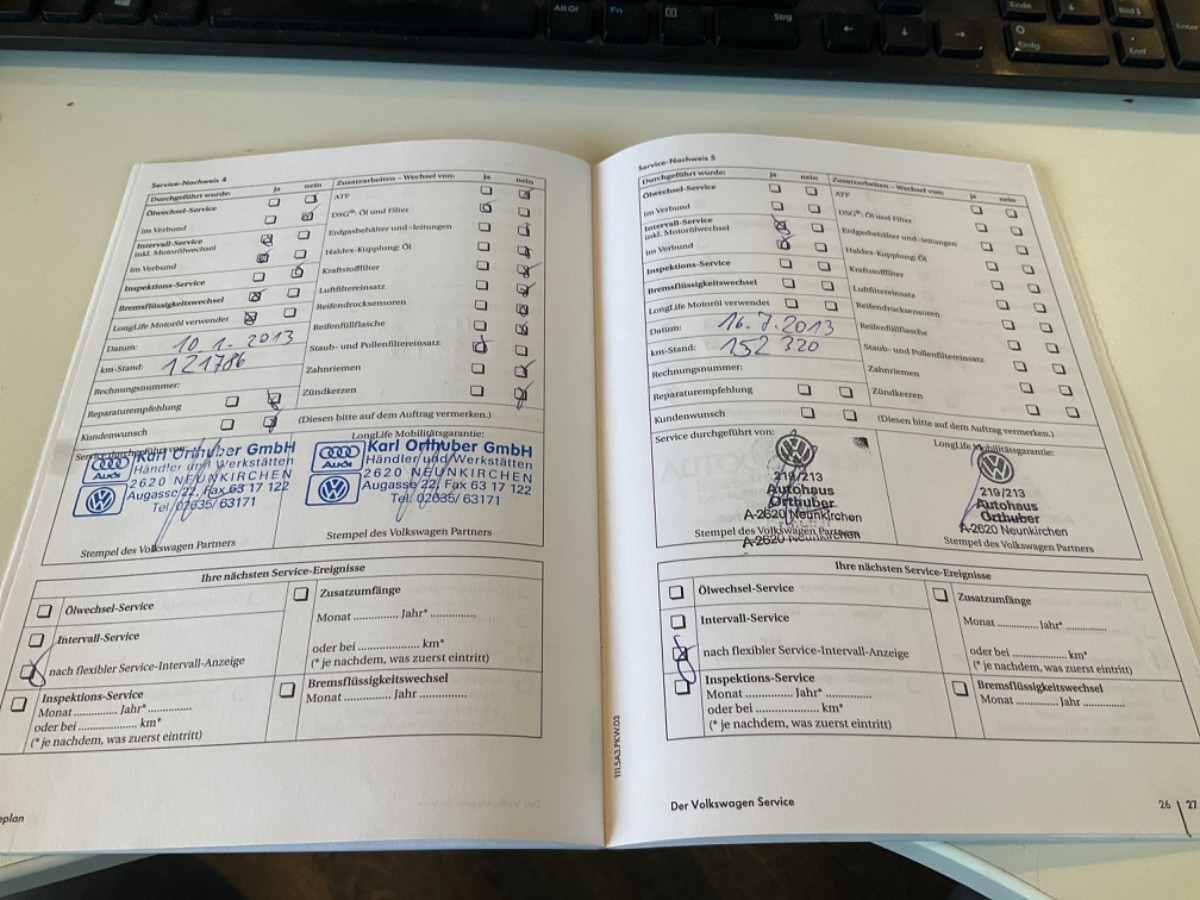 Alt Gr
Fn
Strg
Ende
Bild
Einfg
Ende
Enter
Service-Nachweis 4
Durchgeführt wurde: ja nein
Ölwechsel-Service
im Verbund
Intervall-Service
inkl. Motorölwechsel
im Verbund
Inspektions-Service
Bremsflüssigkeitswechsel
LongLife Motoröl verwendet
Datum: 10 1. 2013
km-Stand: 121786
Rechnungsnummer:
Reparaturempfehlung
Kundenwunsch
Zusatzarbeiten – Wechsel von: ja nein
ATF
DSG®: Öl und Filter
Erdgasbehälter und -leitungen
Haldex-Kupplung: Öl
Kraftstofffilter
Luftfiltereinsatz
Reifendrucksensoren
Reifenfüllflasche
Staub- und Pollenfiltereinsatz
Zahnriemen
Zündkerzen
(Diesen bitte auf dem Auftrag vermerken.)
Service durchgeführt von:
Karl Orthuber GmbH
Audi
Händler und Werkstätten
2620 NEUNKIRCHEN
Augasse 22, Fax 63 17 122
Tel. 02635/ 63171
Stempel des Volkswagen Partners
LongLife Mobilitätsgarantie:
Karl Orthuber GmbH
Audi
Händler und Werkstätten
2620 NEUNKIRCHEN
Augasse 22, Fax 63 17 122
Tel. 02635/ 63171
Stempel des Volkswagen Partners
Ihre nächsten Service-Ereignisse
Ölwechsel-Service
Intervall-Service
nach flexibler Service-Intervall-Anzeige
Inspektions-Service
Monat ............. Jahr* .............
oder bei .................. km*
(* je nachdem, was zuerst eintritt)
Zusatzumfänge
Monat ............. Jahr* .............
oder bei .................. km*
(* je nachdem, was zuerst eintritt)
Bremsflüssigkeitswechsel
Monat ............. Jahr .............
eplan
Service-Nachweis 5
Durchgeführt wurde: ja nein
Ölwechsel-Service
im Verbund
Intervall-Service
inkl. Motorölwechsel
im Verbund
Inspektions-Service
Bremsflüssigkeitswechsel
LongLife Motoröl verwendet
Datum: 16. 7. 2013
km-Stand: 152 320
Rechnungsnummer:
Reparaturempfehlung
Kundenwunsch
Zusatzarbeiten – Wechsel von: ja nein
ATF
DSG®: Öl und Filter
Erdgasbehälter und -leitungen
Haldex-Kupplung: Öl
Kraftstofffilter
Luftfiltereinsatz
Reifendrucksensoren
Reifenfüllflasche
Staub- und Pollenfiltereinsatz
Zahnriemen
Zündkerzen
(Diesen bitte auf dem Auftrag vermerken.)
Service durchgeführt von:
219/213
Autohaus
Orthuber
A-2620 Neunkirchen
Stempel des Volkswagen Partners
A-2620 Neunkirchen
LongLife Mobilitätsgarantie:
219/213
Autohaus
Orthuber
A-2620 Neunkirchen
Stempel des Volkswagen Partners
Ihre nächsten Service-Ereignisse
Ölwechsel-Service
Intervall-Service
nach flexibler Service-Intervall-Anzeige
Inspektions-Service
Monat ............. Jahr* .............
oder bei .................. km*
(* je nachdem, was zuerst eintritt)
Zusatzumfänge
Monat ............. Jahr* .............
oder bei .................. km*
(* je nachdem, was zuerst eintritt)
Bremsflüssigkeitswechsel
Monat ............. Jahr .............
111.5A3.PKW.03
Der Volkswagen Service
26 | 27